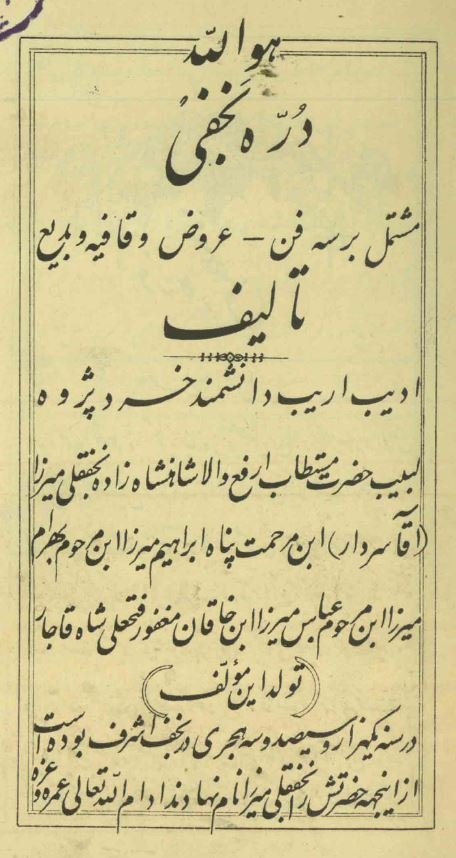 هو الله
دُرّه نجفی
مشتمل بر سه فن - عروض و قافیه و بدیع
تألیف
ادیب اریب دانشمند خرد پژوه
لبیب حضرت مستطاب ارفع والا شاهنشاه زاده نجفقلی میرزا
(آقا سردار) ابن مرحمت پناه ابراهیم میرزا ابن مرحوم بهرام
میرزا ابن مرحوم عباس میرزا ابن خاقان مغفور فتحعلی شاه قاجار
(تولد این مؤلّف)
در سنه یکهزار و سیصد و سه هجری در نجف اشرف بوده است
از اینجهه حضرتش را نجفقلی میرزا نام نهادند ادام الله تعالی عمره و عزه